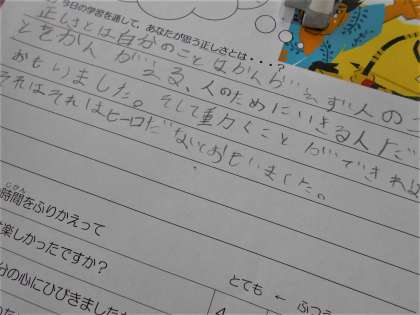 今日の学習を通して、あなたが思う正しさとは・・・?
正しさとは自分のことはかんがえず人の
ことをかんがえる、人のためにいきる人だと
おもいました。そして動くことができれば
それはそれはヒーロだなとおもいました。
時間をふりかえって
じかん
楽しかったですか?
分の心にひびきました
とても ← ふつう
4